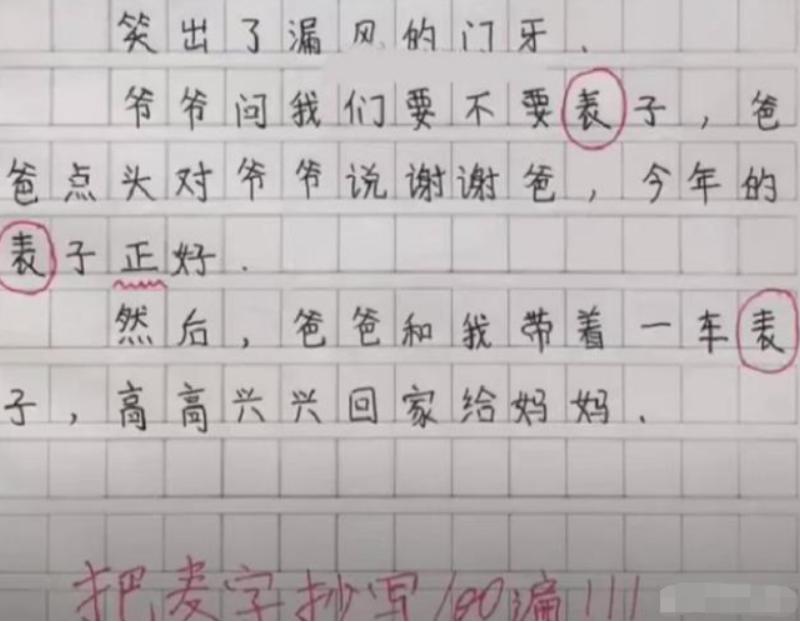 笑出了漏风的门牙.
爷爷问我们要不要表子，爸
爸点头对爷爷说谢谢爸，今年的
表子正好.
然后，爸爸和我带着一车表
子，高高兴兴回家给妈妈.
把麦字抄写100遍!!!